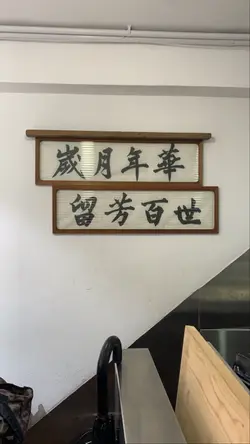 歲月年華
留芳百世